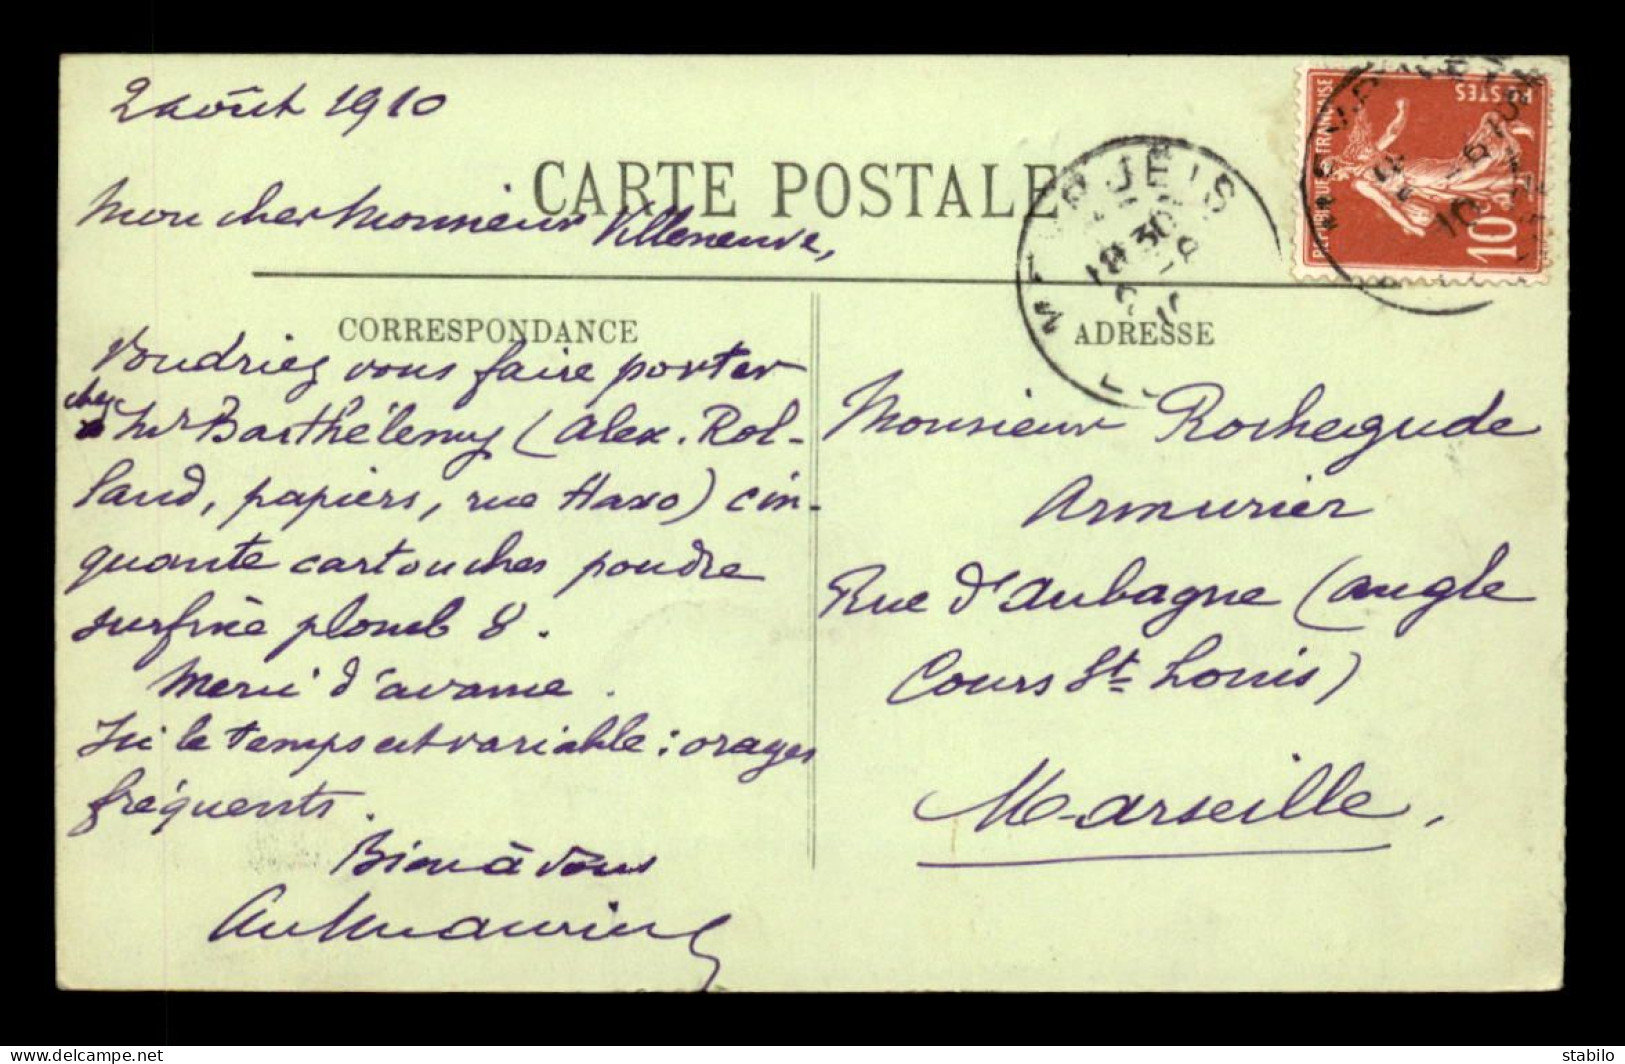 2 août 1910
CARTE POSTALE
Mon cher Monsieur Villeneuve,
CORRESPONDANCE
Voudriez vous faire porter
chez Mr Barthélemy (Alex. Rol-
land, papiers, rue Haxo) cin-
quante cartouches poudre
surfine plomb 8.
Merci d'avance.
Ici le temps est variable : orages
fréquents.
Bien à vous
REPUBLIQUE FRANÇAISE
POSTES
10
18 30
ADRESSE
Monsieur Rochegude
Armurier
Rue d'Aubagne (angle
Cours St Louis)
Marseille.
www.delcampe.net
stabilo